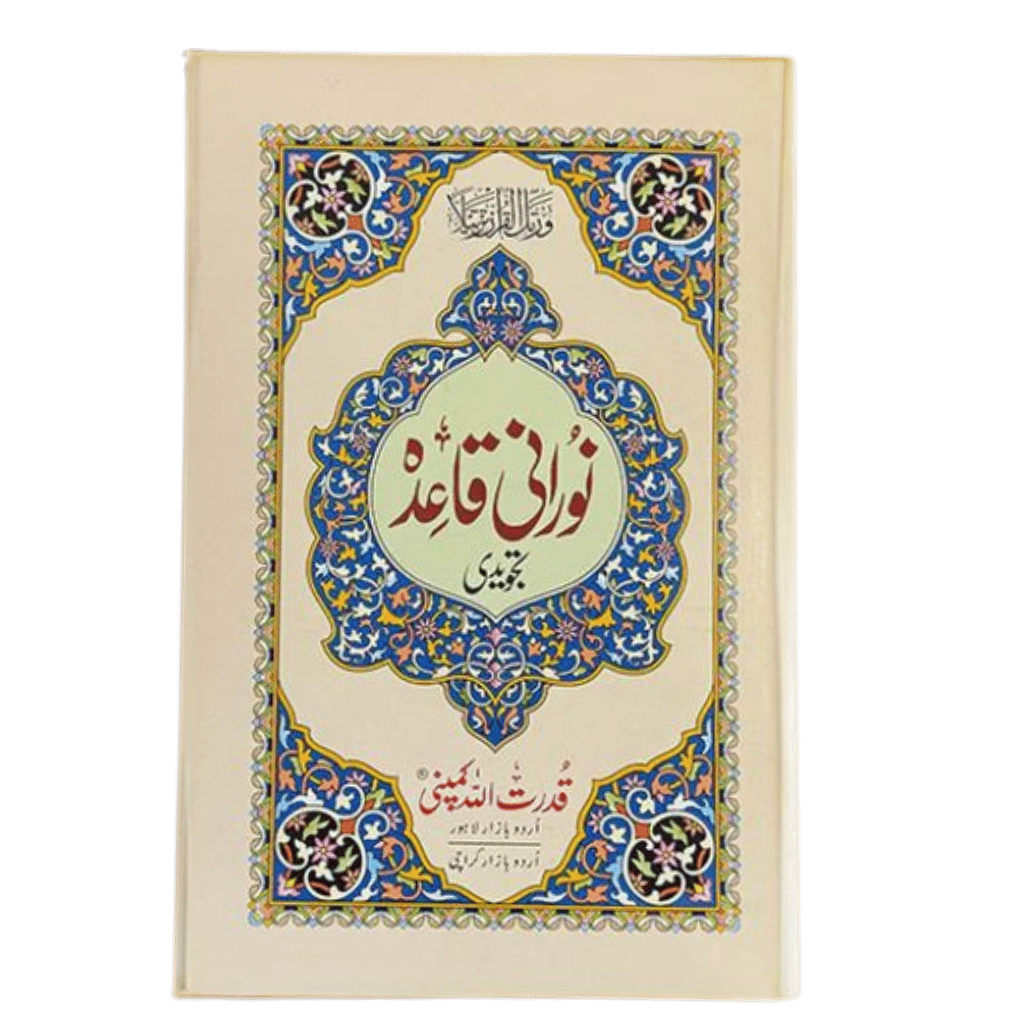 ورتل القرآن ترتيلا
نُورانی قاعِدہ
تجویدی
قُدرت اللہ کمپنی ®
اُردو بازار لاہور
اُردو بازار کراچی